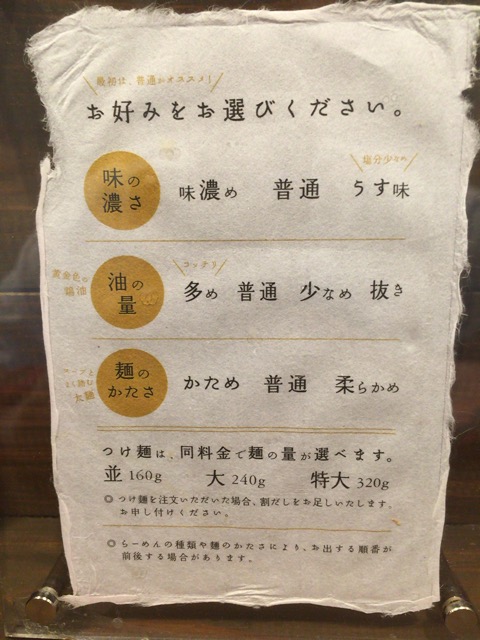 最初は、普通がオススメ！
お好みをお選びください。
塩分少なめ
味の
濃さ
味濃め 普通 うす味
コッテリ
黄金色の
鶏油
油の
量
多め 普通 少なめ 抜き
スープと
よく絡む
太麺
麺の
かたさ
かため 普通 柔らかめ
つけ麺は、同料金で麺の量が選べます。
並160g 大240g 特大320g
◎つけ麺を注文いただいた場合、割だしをお足しいたします。
お申し付けください。
◎らーめんの種類や麺のかたさにより、お出する順番が
前後する場合があります。